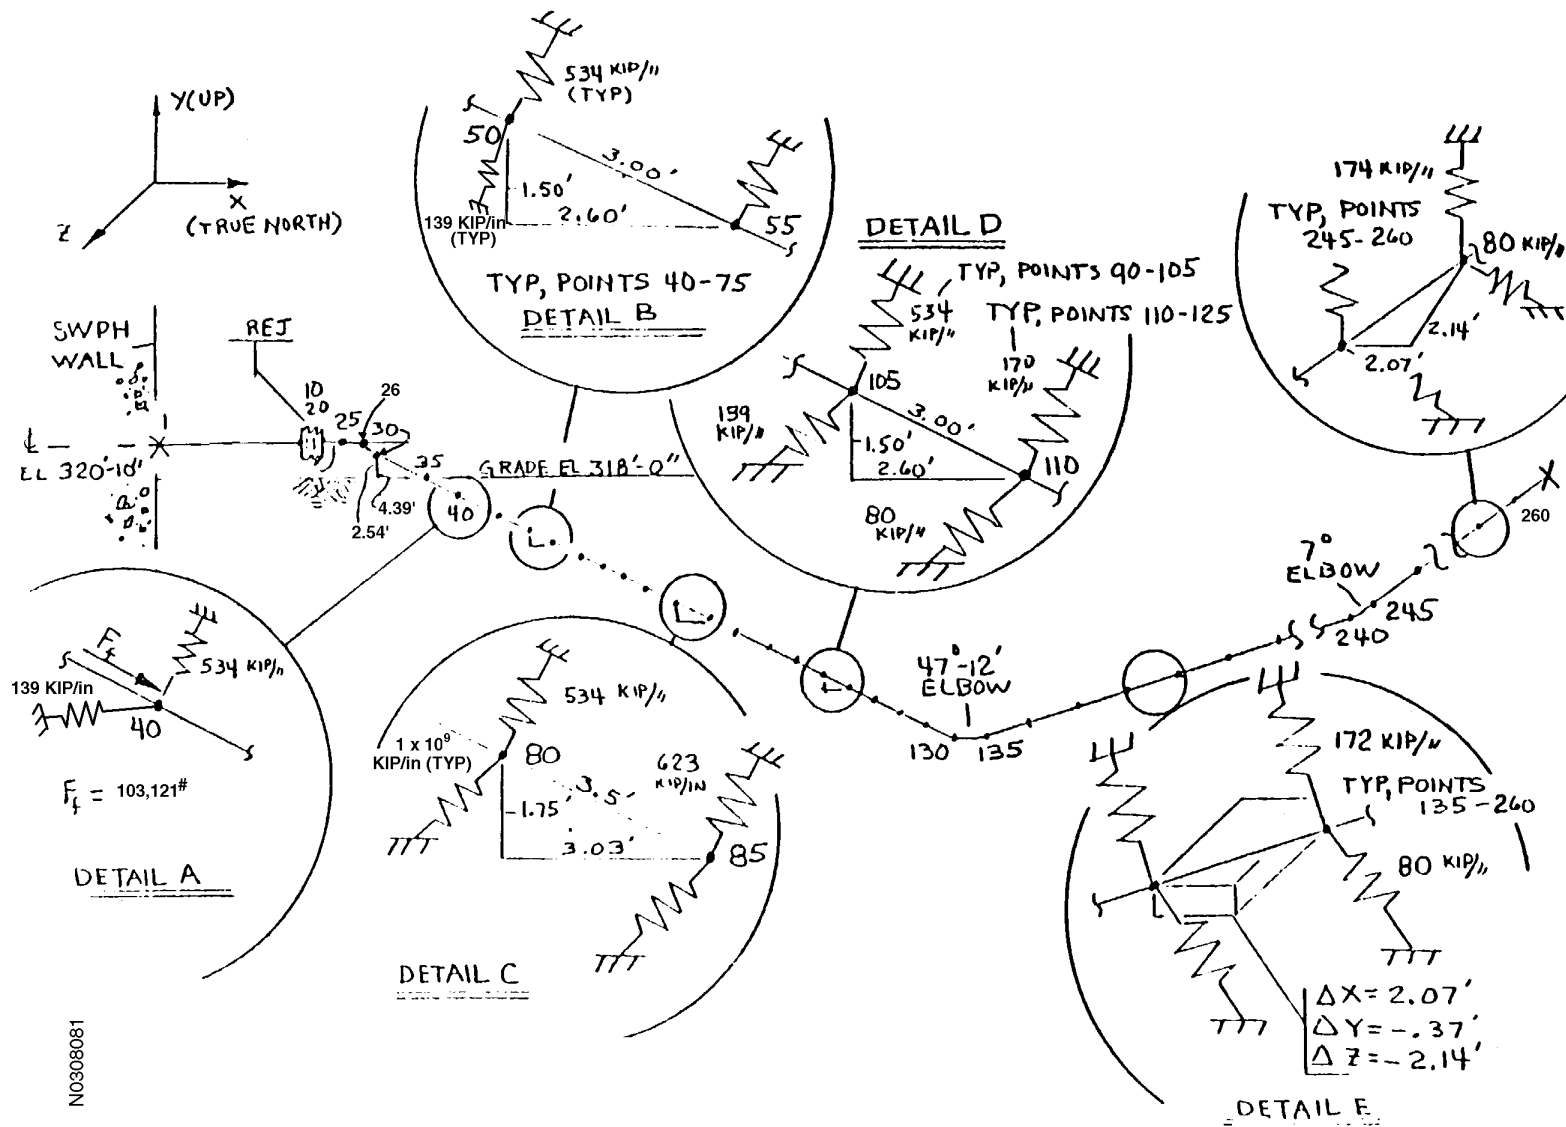 Y(UP)
X
(TRUE NORTH)
Z
534 KIP/"
(TYP)
50
3.00'
1.50'
2.60'
139 KIP/in
(TYP)
55
TYP, POINTS 40-75
DETAIL B
DETAIL D
TYP, POINTS 90-105
534
KIP/"
TYP, POINTS 110-125
170
KIP/"
105
139
KIP/"
3.00'
1.50'
2.60'
110
80
KIP/"
174 KIP/"
TYP, POINTS
245-260
80 KIP/"
2.14'
2.07'
SWPH
WALL
REJ
10
20
25
26
30
35
1
℄
EL 320'-10"
GRADE EL 318'-0"
4.39'
2.54'
40
260
7°
ELBOW
245
240
47°-12'
ELBOW
130
135
Ff
534 KIP/"
139 KIP/in
40
Ff = 103,121#
DETAIL A
534 KIP/"
1 x 10⁹
KIP/in (TYP)
80
623
KIP/IN
3.5'
1.75'
3.03'
85
DETAIL C
172 KIP/"
TYP, POINTS
135-260
80 KIP/"
ΔX = 2.07'
ΔY = -.37'
ΔZ = -2.14'
DETAIL E
N0308081